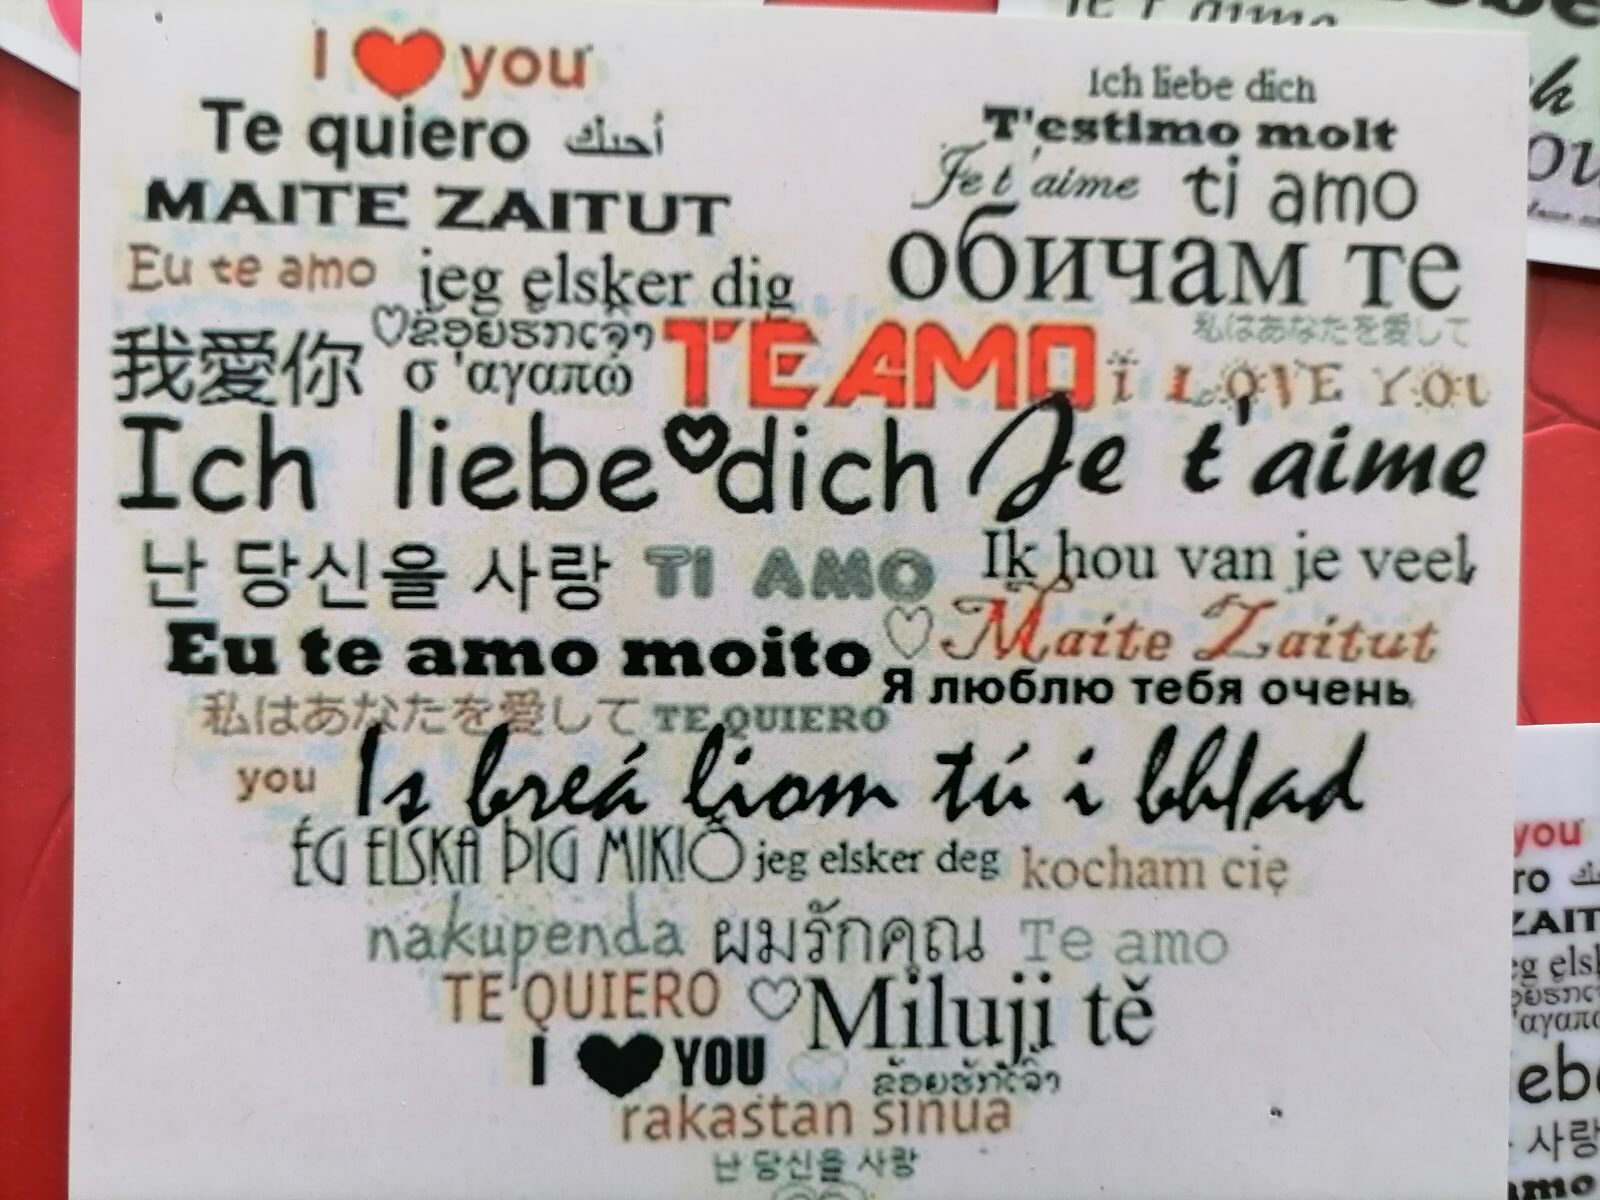 I ♥ you
Ich liebe dich
Te quiero أحبك
T'estimo molt
MAITE ZAITUT
Je t'aime ti amo
Eu te amo jeg elsker dig
обичам те
♡ຂ້ອຍຮັກເຈົ້າ
私はあなたを愛して
我愛你 σ 'αγαπώ TE AMO I LOVE YOU
Ich liebe♥dich Je t'aime
난 당신을 사랑 TI AMO Ik hou van je veel
Eu te amo moito ♡Maite Zaitut
Я люблю тебя очень
私はあなたを愛して TE QUIERO
you Is breá liom tú i bhfad
ÉG ELSKA ÞIG MIKIÕ jeg elsker deg kocham cię
nakupenda ผมรักคุณ Te amo
TE QUIERO ♡Miluji tě
I ♥ YOU
ຂ້ອຍຮັກເຈົ້າ
rakastan sinua
난 당신을 사랑
you
ro
ZAIT
eg elsk
'αγαπώ
ebe
사랑
amo